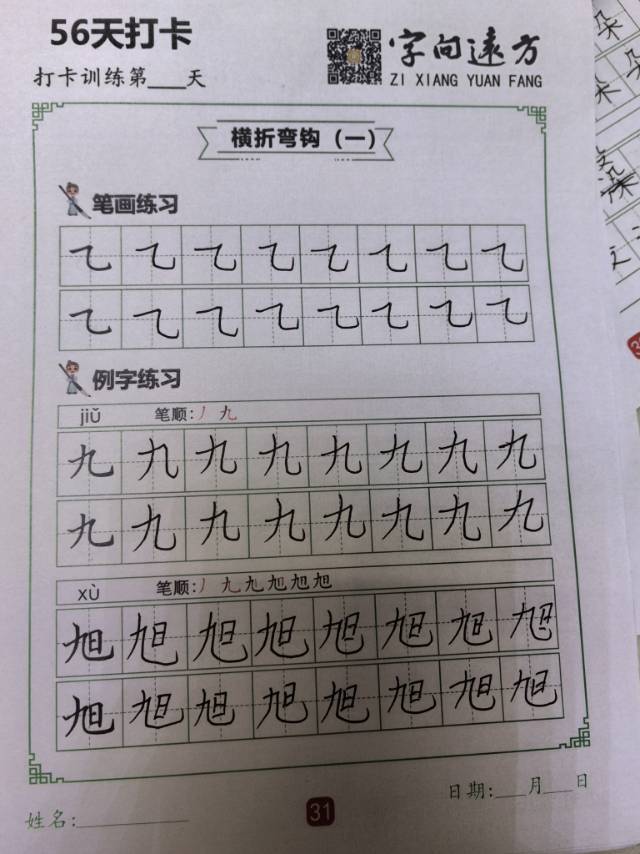 56天打卡
打卡训练第___天
字向远方
ZI XIANG YUAN FANG
横折弯钩（一）
笔画练习
㇈ ㇈ ㇈ ㇈ ㇈ ㇈ ㇈ ㇈
㇈ ㇈ ㇈ ㇈ ㇈ ㇈ ㇈ ㇈
例字练习
jiǔ 笔顺:丿九
九 九 九 九 九 九 九 九
九 九 九 九 九 九 九 九
xù 笔顺:丿九九旭旭旭
旭 旭 旭 旭 旭 旭 旭 旭
旭 旭 旭 旭 旭 旭 旭 旭
日期:___月___日
姓名:
31
朵
朵